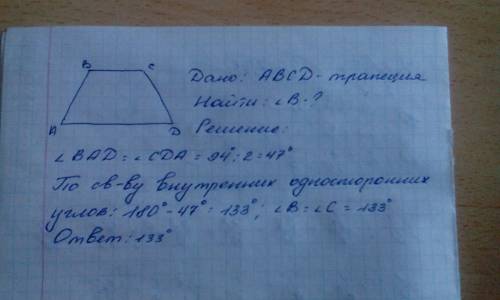 B C
A D
Дано: ABCD - трапеция
Найти: ∠B-?
Решение:
∠BAD = ∠CDA = 94°:2=47°
По св-ву внутренних односторонних
углов: 180°-47°=133°; ∠B=∠C=133°
Ответ: 133°